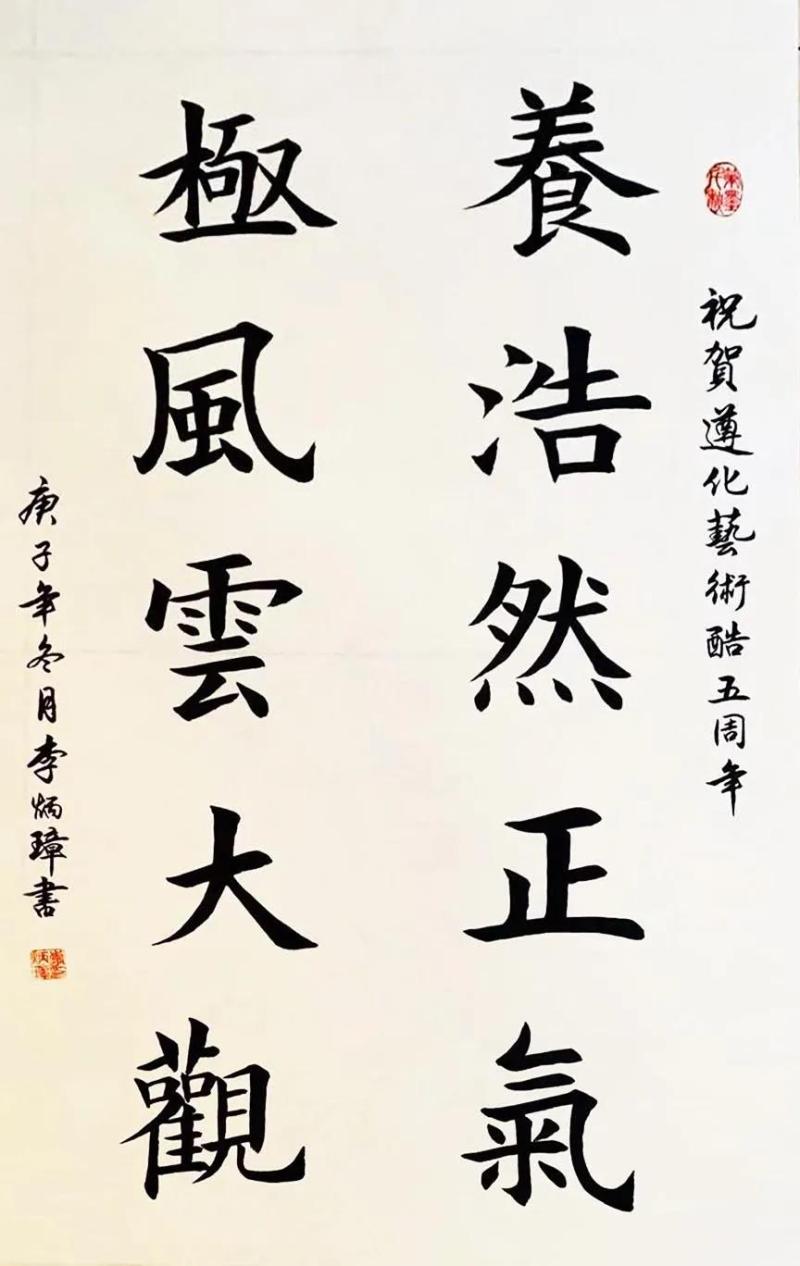 祝賀遵化藝術酷五周年
養浩然正氣
極風雲大觀
庚子年冬月李炳璋書